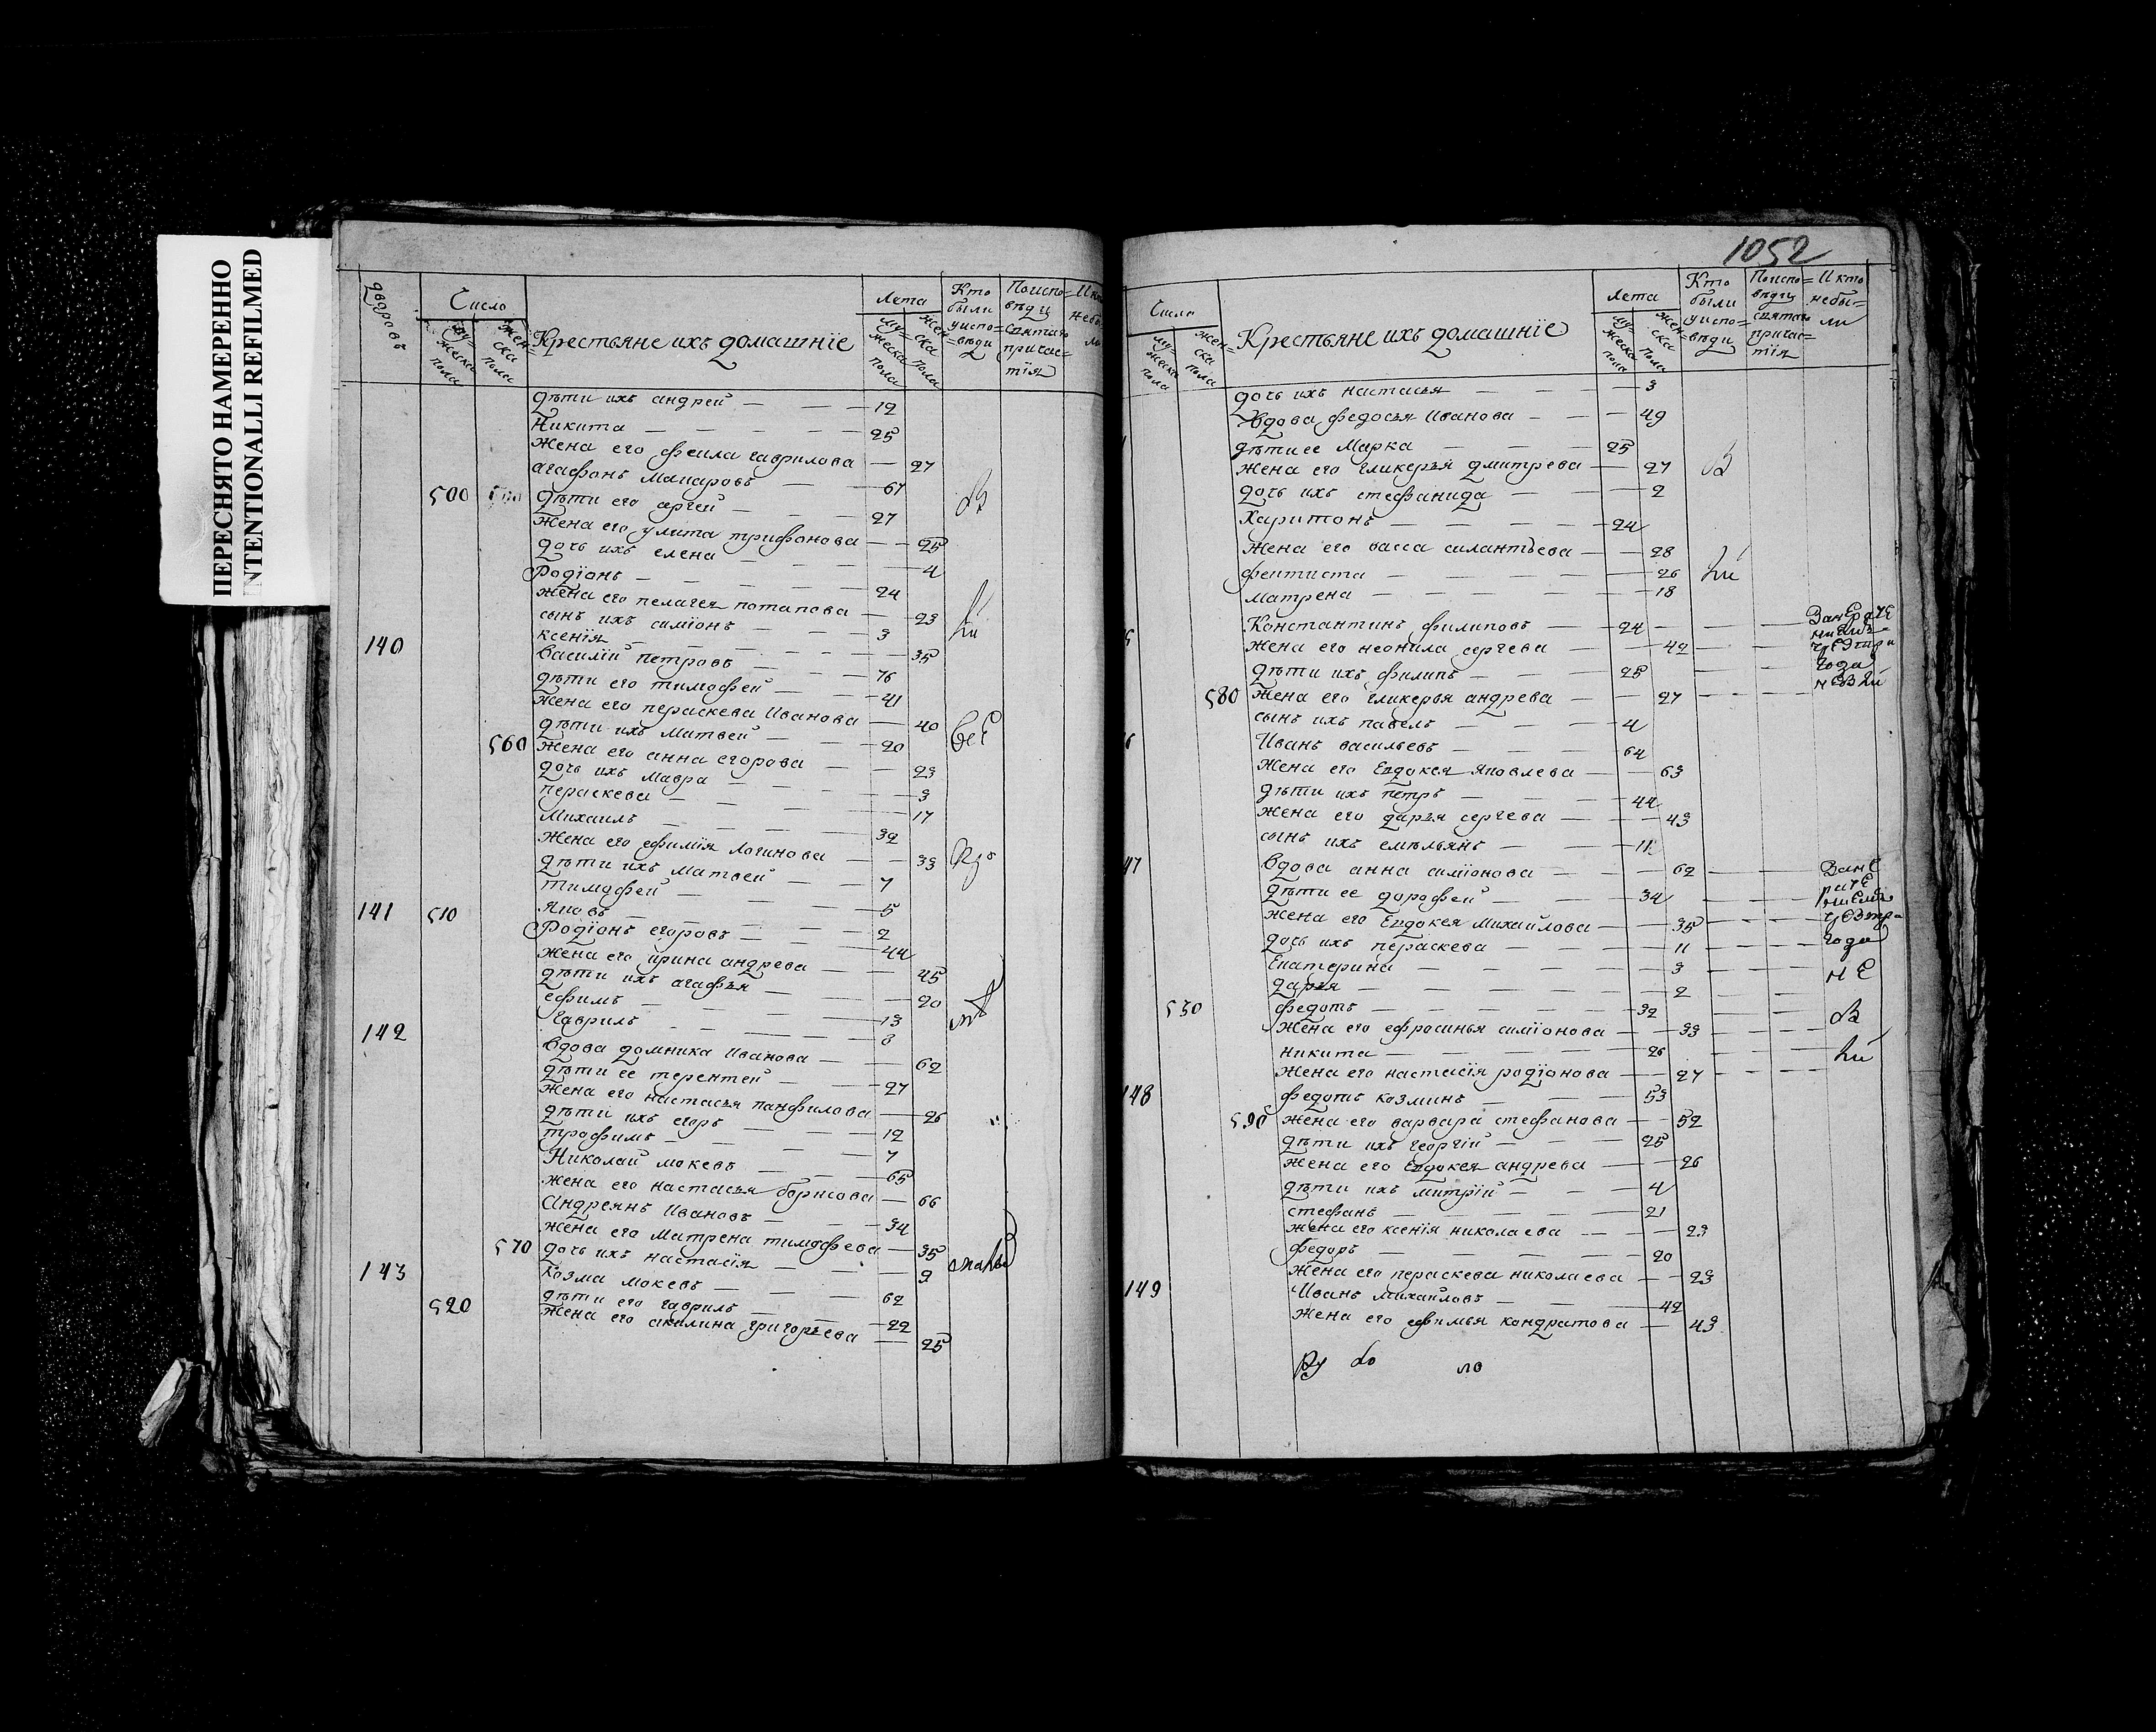 ПЕРЕСНЯТО НАМЕРЕННО
INTENTIONALLI REFILMED
дворовъ
Число
мужеска пола
женска пола
Крестьяне ихъ домашнїе
Лета
мужеска пола
женска пола
Кто были уиспо=веди
Поиспо=веди святаго причас=тїя
дѣти ихъ андрей — 12
Никита — 25
Жена его феила гаврилова — 27
агафонъ Макаровъ — 67
500 дѣти его сергей — 27
Жена его улита трифонова — 25
дочь ихъ елена — 4
Родїонъ — 24
Жена его пелагея потапова — 23
сынъ ихъ симїонъ — 3
ксенїя — 35
140 Василїй петровъ — 76
дѣти его тимофей — 41
Жена его пераскева Иванова — 40
дѣти ихъ Матвей — 20
560 Жена его анна егорова — 23
дочь ихъ Мавра — 3
пераскева — 17
Михаилъ — 32
Жена его ефимїя Логинова — 33
дѣти ихъ Матвей — 7
Тимофей — 5
510 Яковъ — 2
141 Родїонъ егоровъ — 44
Жена его ирина андреева — 45
дѣти ихъ агафья — 20
ефимъ — 13
Гаврилъ — 8
142 Вдова домника Иванова — 62
дѣти ее терентей — 27
Жена его настасья панфилова — 26
дѣти ихъ егоръ — 12
трофимъ — 7
Николай мокевъ — 65
жена его настасья борисова — 66
Андреянъ Ивановъ — 34
жена его Матрена тимофеева — 35
570 дочь ихъ настасїя — 9
143 Козма мокевъ — 62
дѣти его гаврилъ — 22
520 Жена его акилина григорьева — 25
1052
Число
мужеска пола
женска пола
Крестьяне ихъ домашнїе
Лета
мужеска пола
женска пола
Кто были уиспо=веди
Поиспо=веди святаго причас=тїя
И кто небы=ли
дочь ихъ настасья — 3
Вдова федосья Иванова — 49
дѣти ее Марка — 25
Жена его гликерья дмитрева — 27
дочь ихъ стефанида — 2
Харитонъ — 24
Жена его васса силантьева — 28
феитиста — 26
матрена — 18
Константинъ филиповъ — 24
Жена его неонила сергева — 42
дѣти ихъ филипъ — 25
580 Жена его гликерья андрева — 27
сынъ ихъ павелъ — 4
Иванъ васильевъ — 64
Жена его Евдокея Яковлева — 63
дѣти ихъ петръ — 44
жена его дарья сергева — 43
сынъ ихъ емельянъ — 11
47 Вдова анна симїонова — 62
дѣти ее дорофей — 34
жена его Евдокея Михайлова — 35
дочь ихъ пераскева — 11
Екатерина — 3
дарья — 2
530 федотъ — 32
Жена его ефросинья симїонова — 33
никита — 26
Жена его настасїя родїонова — 27
148 федотъ козминъ — 53
590 жена его варвара стефанова — 52
дѣти ихъ георгїй — 25
жена его Евдокея андрева — 26
дѣти ихъ митрїй — 4
стефанъ — 21
Жена его ксенїя николаева — 23
федоръ — 20
Жена его пераскева николаева — 23
149 Иванъ михайловъ — 42
Жена его ефимья кондратова — 43